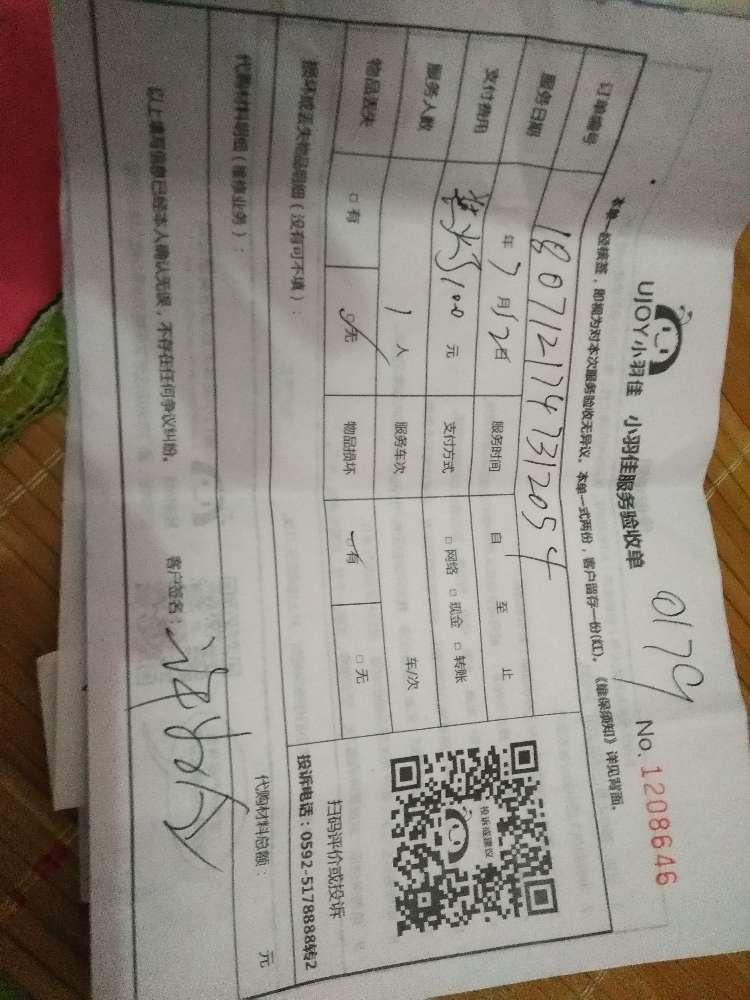 UJOY小羽佳 小羽佳服务验收单
0179
No. 1208646
本单一经核签，即视为对本次服务验收无异议。本单一式两份，客户留存一份(红)。《维保须知》详见背面。
订单编号 1807121747312054
服务日期 年7月12日 服务时间 自 至 止
支付费用 100 元 支付方式 □网络 □现金 □转账
服务人数 1人 服务车次 车/次
物品丢失 □有 □无 物品损坏 □有 □无
损坏或丢失物品明细（没有可不填）：
代购材料明细（维修业务）： 代购材料总额： 元
以上填写信息已经本人确认无误，不存在任何争议纠纷。 客户签名：
投诉或建议
扫码评价或投诉
投诉电话：0592-5178888转2